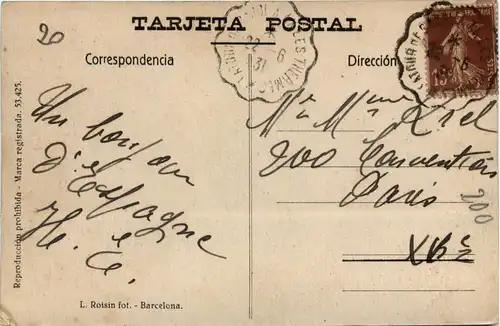 20
TARJETA POSTAL
Correspondencia
Dirección
22 - 6
31
Un bonjour
d'Espagne
200 Convention
Paris
XVe
200
Reproducción prohibida - Marca registrada. 53.425.
L. Roisin fot. - Barcelona.